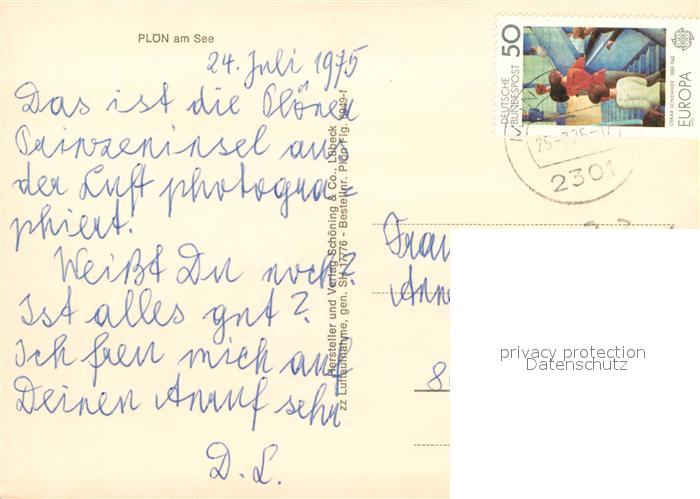 PLÖN am See
24. Juli 1975
Das ist die Plöner
Prinzeninsel aus
der Luft photogra-
phiert.
Weißt Du noch?
Ist alles gut?
Ich freu mich auf
Deinen Anruf sehr
D. L.
Hersteller und Verlag Schöning & Co., Lübeck
zz Luftaufnahme, gen. SH 17/76 - Bestellnr. Plön Flg. 6849-f
50
DEUTSCHE
BUNDESPOST
OSKAR SCHLEMMER 1888-1943
EUROPA
25-7.75-17
2301
Frau
Anne
privacy protection
Datenschutz